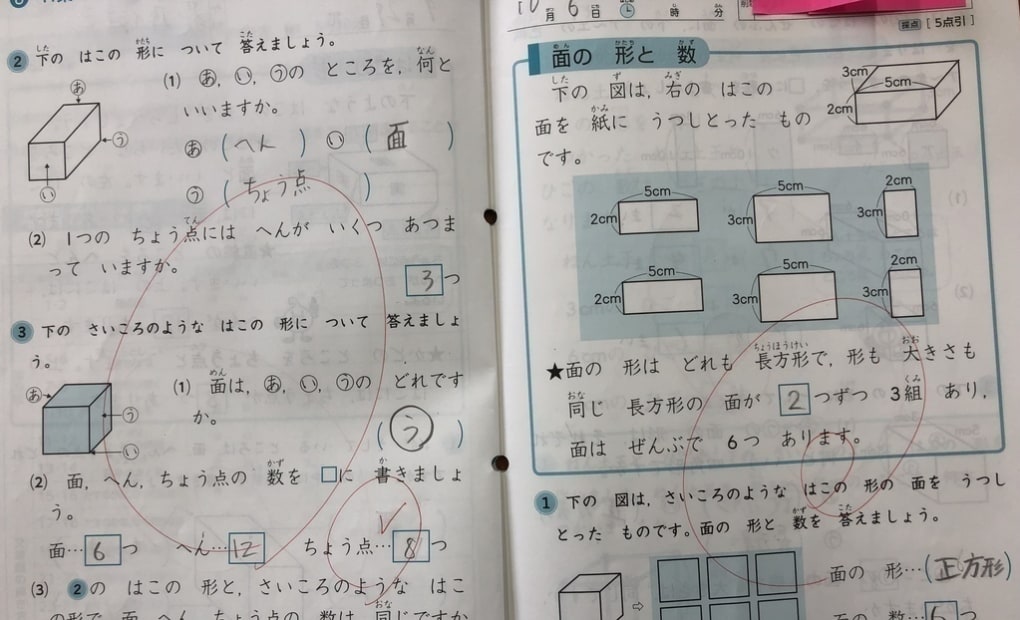 2 下の はこの 形に ついて 答えましょう。
(1) あ, い, うの ところを, 何と
いいますか。
あ (へん) い (面)
う (ちょう点)
(2) 1つの ちょう点には へんが いくつ あつま
って いますか。
3つ
3 下の さいころのような はこの 形に ついて 答えましょ
う。
(1) 面は, あ, い, うの どれです
か。
(う)
(2) 面, へん, ちょう点の 数を □に 書きましょ
う。
面…6つ へん…12 ちょう点…8つ
(3) 2の はこの 形と, さいころのような はこ
の形で 面 へん ちょう点の 数は 同じですか
あ
う
い
あ
う
い
10月6日 時 分
採点 [5点引]
面の 形と 数
下の 図は, 右の はこの
面を 紙に うつしとった もの
です。
3cm
5cm
2cm
5cm 5cm 2cm
2cm 3cm 3cm
5cm 5cm 2cm
2cm 3cm 3cm
★面の 形は どれも 長方形で, 形も 大きさも
同じ 長方形の 面が 2つずつ 3組 あり,
面は ぜんぶで 6つ あります。
1 下の 図は, さいころのような はこの 形の 面を うつし
とった ものです。面の 形と 数を 答えましょう。
面の 形…(正方形)
面の 数…6つ